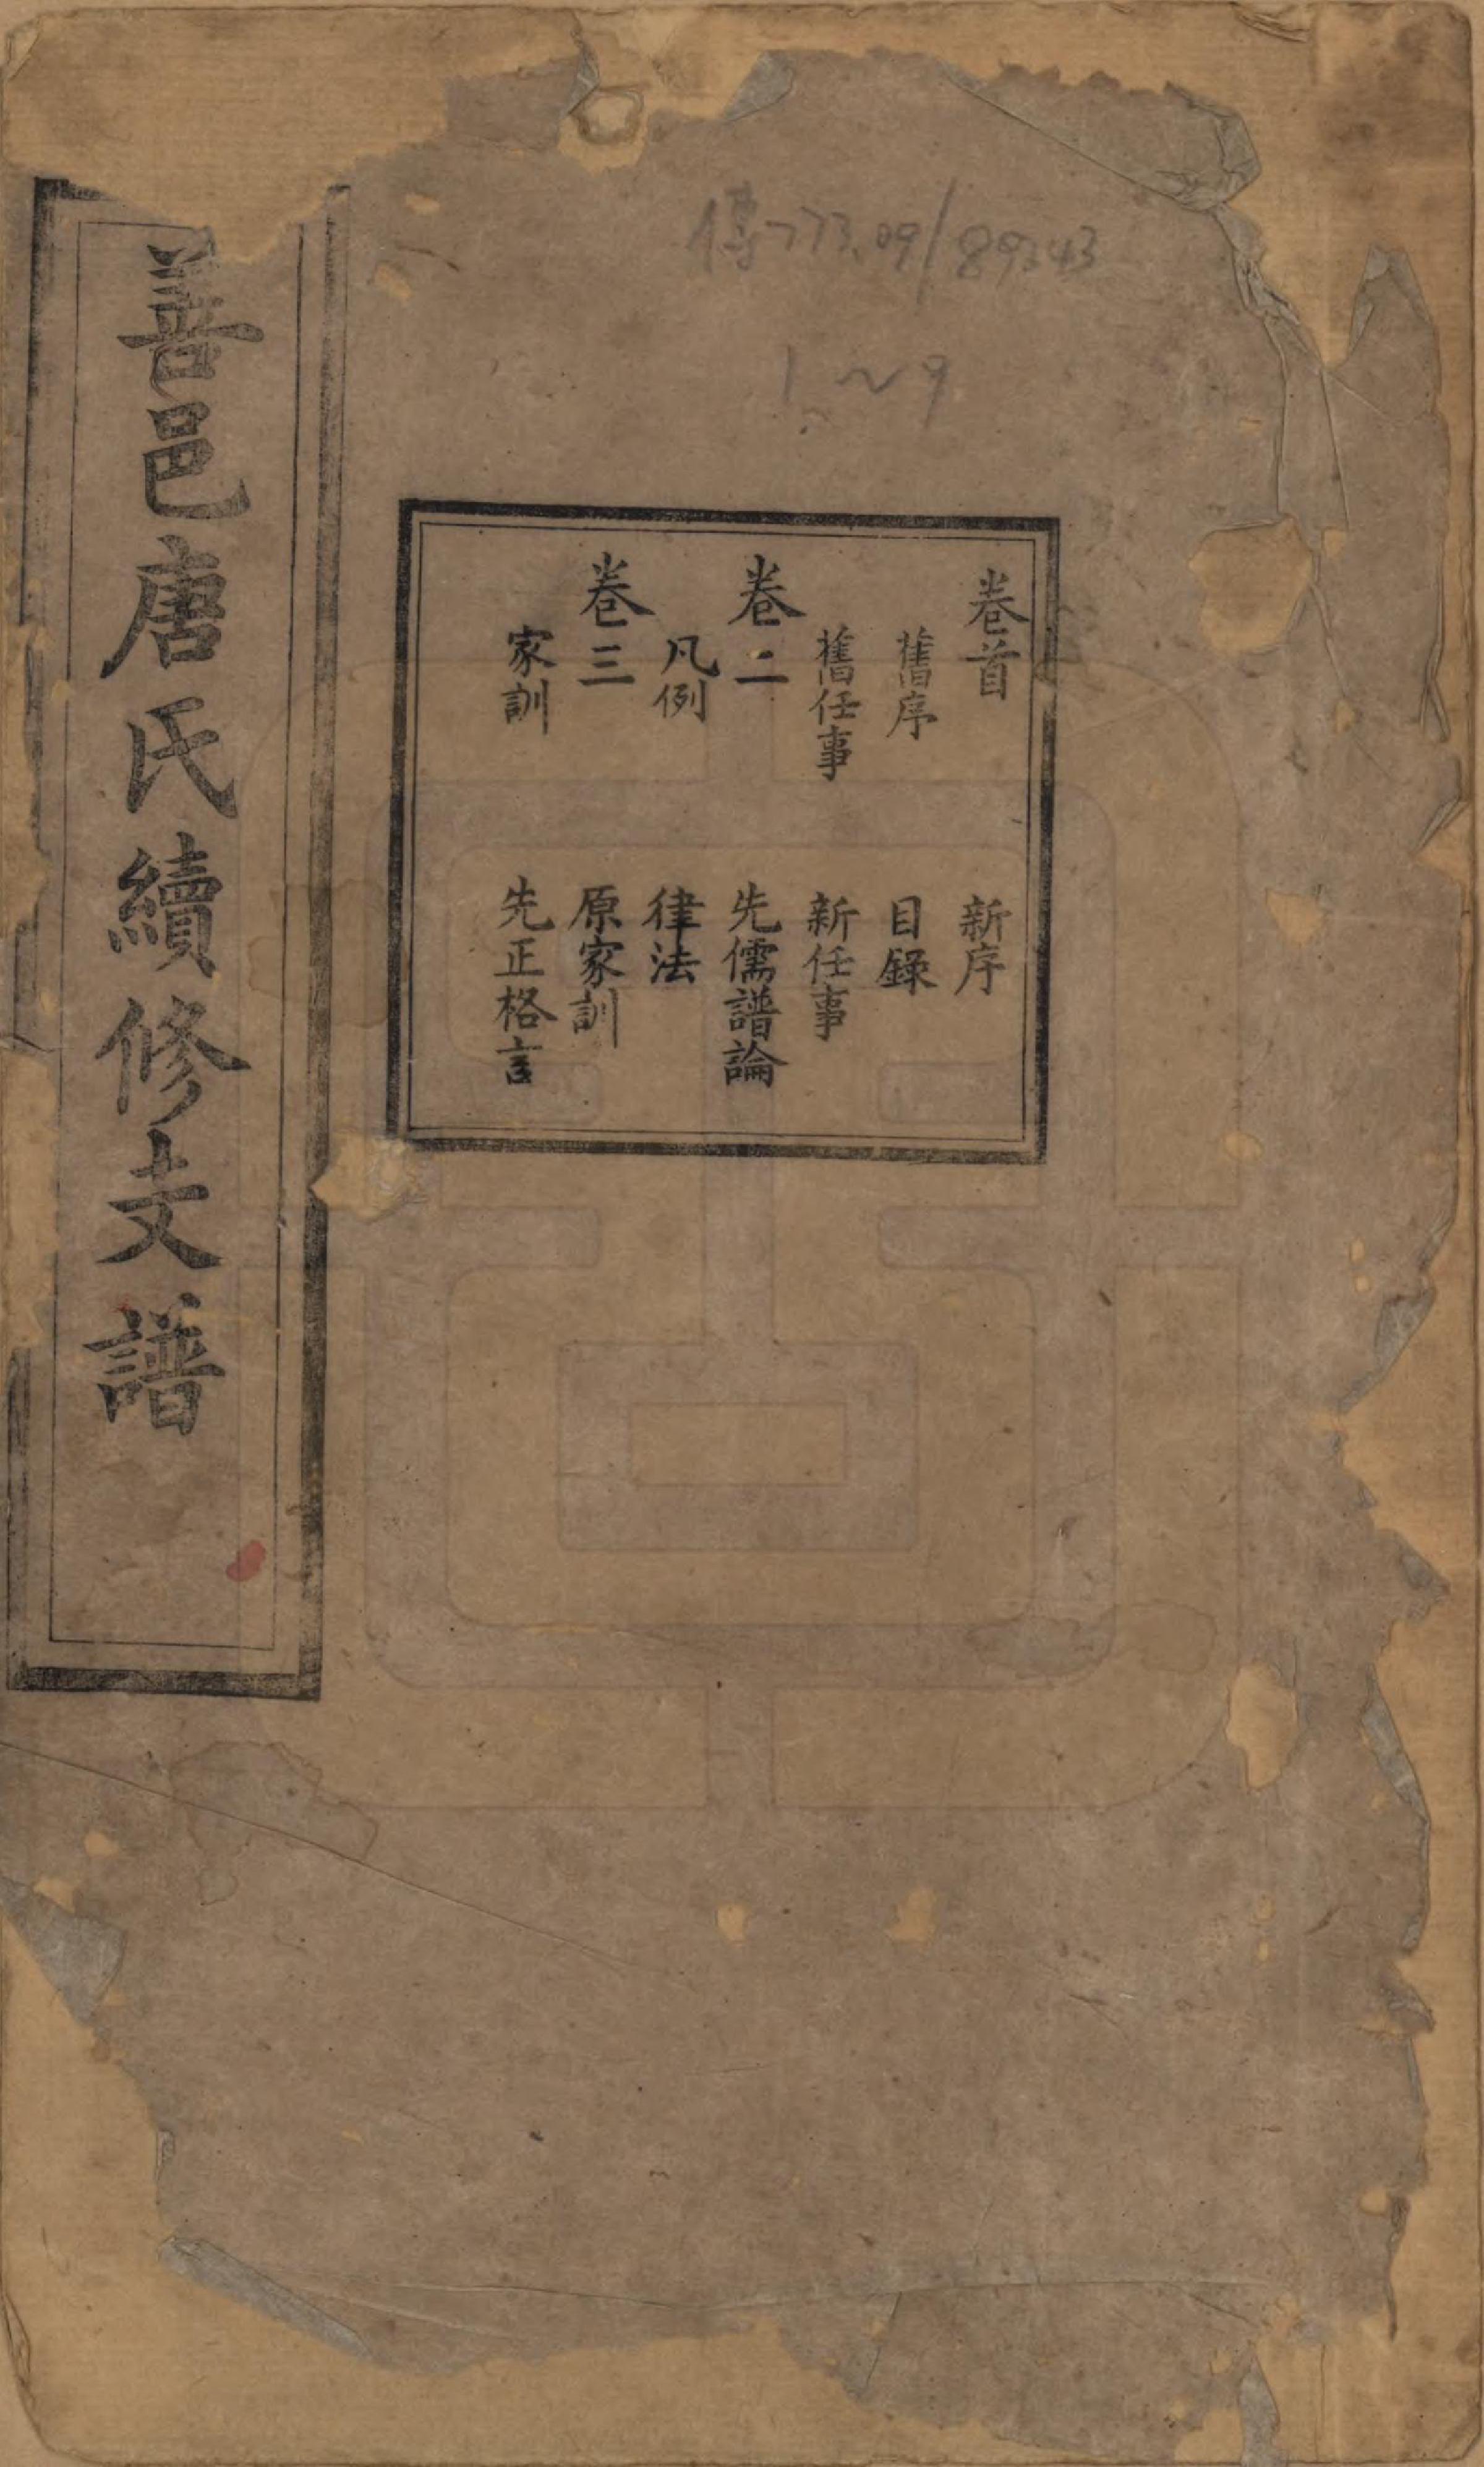 傳773.09/89343
1~9
卷首
舊序 新序
目錄
舊任事 新任事
卷二 先儒譜論
凡例 律法
卷三 原家訓
家訓 先正格言
善邑唐氏續修支譜